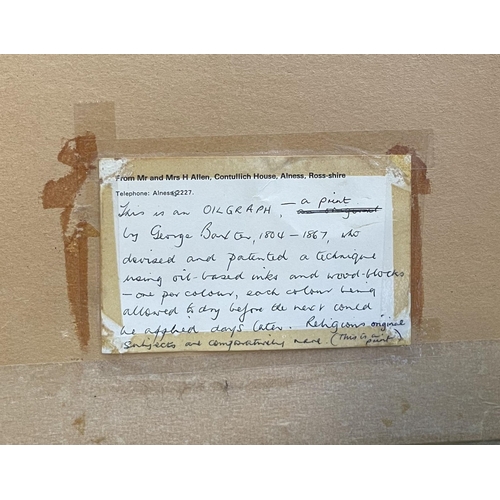 From Mr and Mrs H Allen, Contullich House, Alness, Ross-shire
Telephone: Alness 2227.
This is an OILGRAPH, — a print
by George Baxter, 1804 – 1867, who
devised and patented a technique
using oil-based inks and wood-blocks
– one per colour, each colour being
allowed to dry before the next could
be applied days later. Religious
subjects are comparatively rare (This is original print)